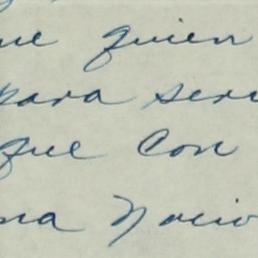 ue quien
para serv
que con
na novio